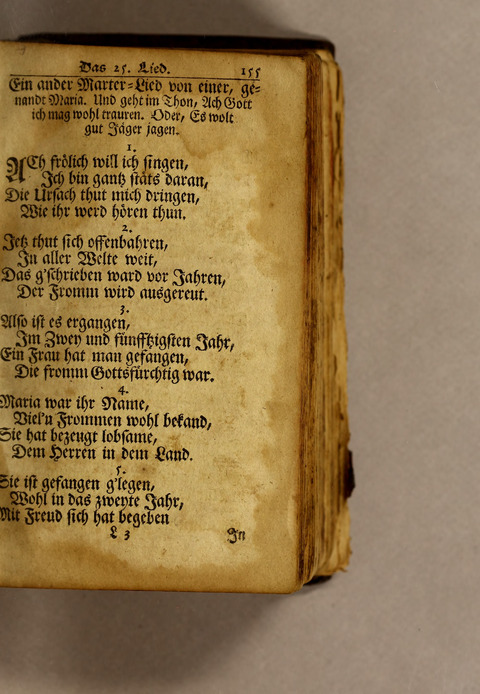 Das 25. Lied. 155
Ein ander Marter-Lied von einer, ge-
nandt Maria. Und geht im Thon, Ach Gott
ich mag wohl trauren. Oder, Es wolt
gut Jäger jagen.
1.
ACh frölich will ich singen,
Ich bin gantz stäts daran,
Die Ursach thut mich dringen,
Wie ihr werd hören thun.
2.
Jetz thut sich offenbahren,
In aller Welte weit,
Das g'schrieben ward vor Jahren,
Der Fromm wird ausgereut.
3.
Also ist es ergangen,
Im Zwey und fünfftzigsten Jahr,
Ein Frau hat man gefangen,
Die fromm Gottsfürchtig war.
4.
Maria war ihr Name,
Viel'n Frommen wohl bekand,
Sie hat bezeugt lobsame,
Dem Herren in dem Land.
5.
Sie ist gefangen g'legen,
Wohl in das zweyte Jahr,
Mit Freud sich hat begeben
L 3 In